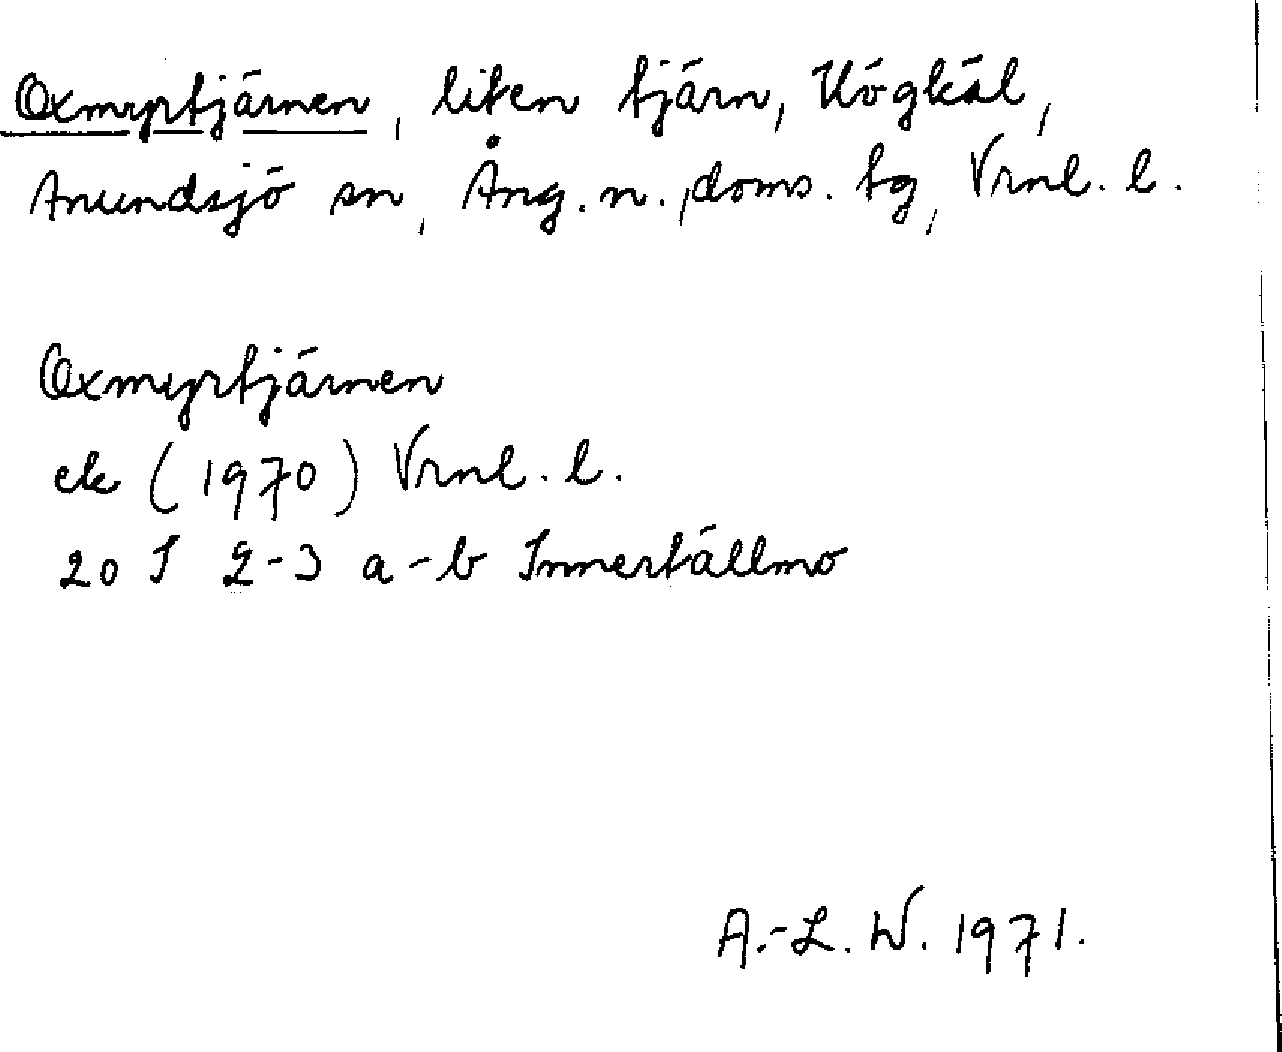 Oxmyrtjärnen, liten tjärn, Högkål,
Anundsjö sn, Ång. n. doms. tg, Vrnl. l.
Oxmyrtjärnen
ek (1970) Vrnl. l.
20 I 2-3 a-b Innertällmo
A.-L. W. 1971.